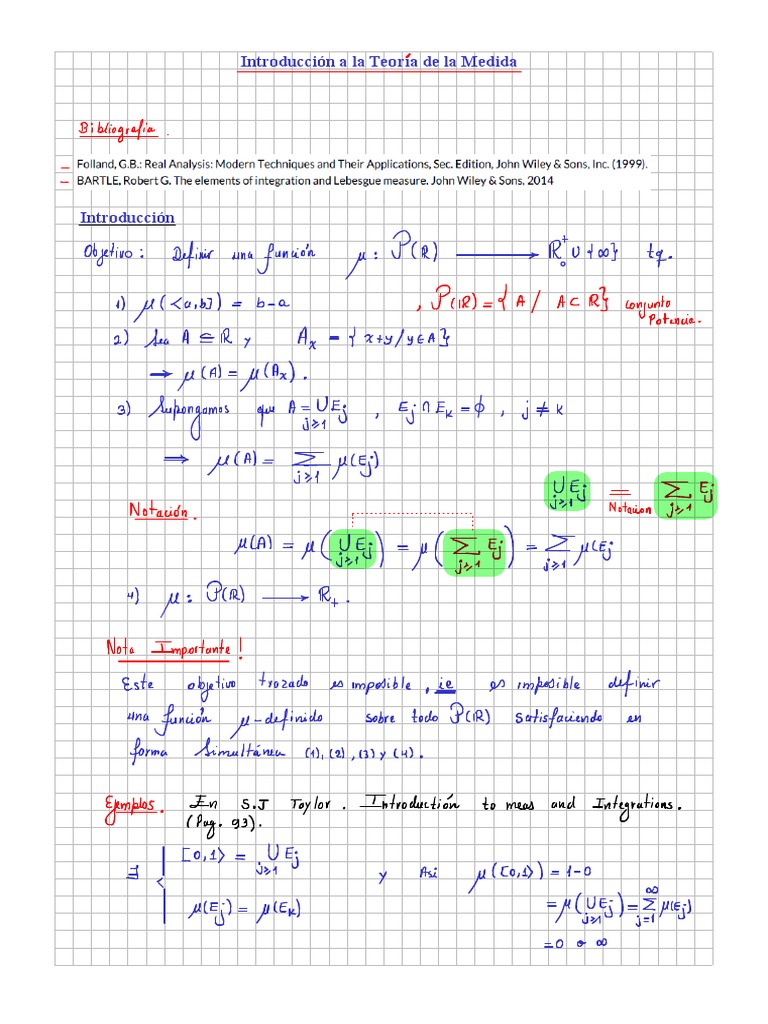 Introducción a la Teoría de la Medida
Bibliografia.
– Folland, G.B.: Real Analysis: Modern Techniques and Their Applications, Sec. Edition, John Wiley & Sons, Inc. (1999).
– BARTLE, Robert G. The elements of integration and Lebesgue measure. John Wiley & Sons, 2014
Introducción
Objetivo: Definir una función μ: P(ℝ) ⟶ ℝ₀⁺ ∪ {∞} tq.
1) μ(<a,b]) = b-a , P(ℝ) = { A / A ⊂ ℝ} conjunto Potencia.
2) Sea A ⊆ ℝ y Aₓ = { x+y / y ∈ A }
→ μ(A) = μ(Aₓ).
3) Supongamos que A = ∪_{j≥1} Ej , Ej ∩ Ek = ∅ , j ≠ k
⟹ μ(A) = Σ_{j≥1} μ(Ej)
∪_{j≥1} Ej = Notacion Σ_{j≥1} Ej
Notación.
μ(A) = μ(∪_{j≥1} Ej) = μ(Σ_{j≥1} Ej) = Σ_{j≥1} μ(Ej
4) μ: P(ℝ) ⟶ ℝ₊.
Nota Importante!
Este objetivo trozado es imposible, ie es imposible definir
una función μ-definido sobre todo P(ℝ) satisfaciendo en
forma simultánea (1), (2), (3) y (4).
Ejemplos. En S.J Taylor. Introductión to meas and Integrations.
(Pag. 93).
∃ { [0,1> = ∪_{j≥1} Ej y Asi μ([0,1>) = 1-0
μ(Ej) = μ(Ek) = μ(∪_{j≥1} Ej) = Σ_{j=1}^{∞} μ(Ej)
= 0 o ∞